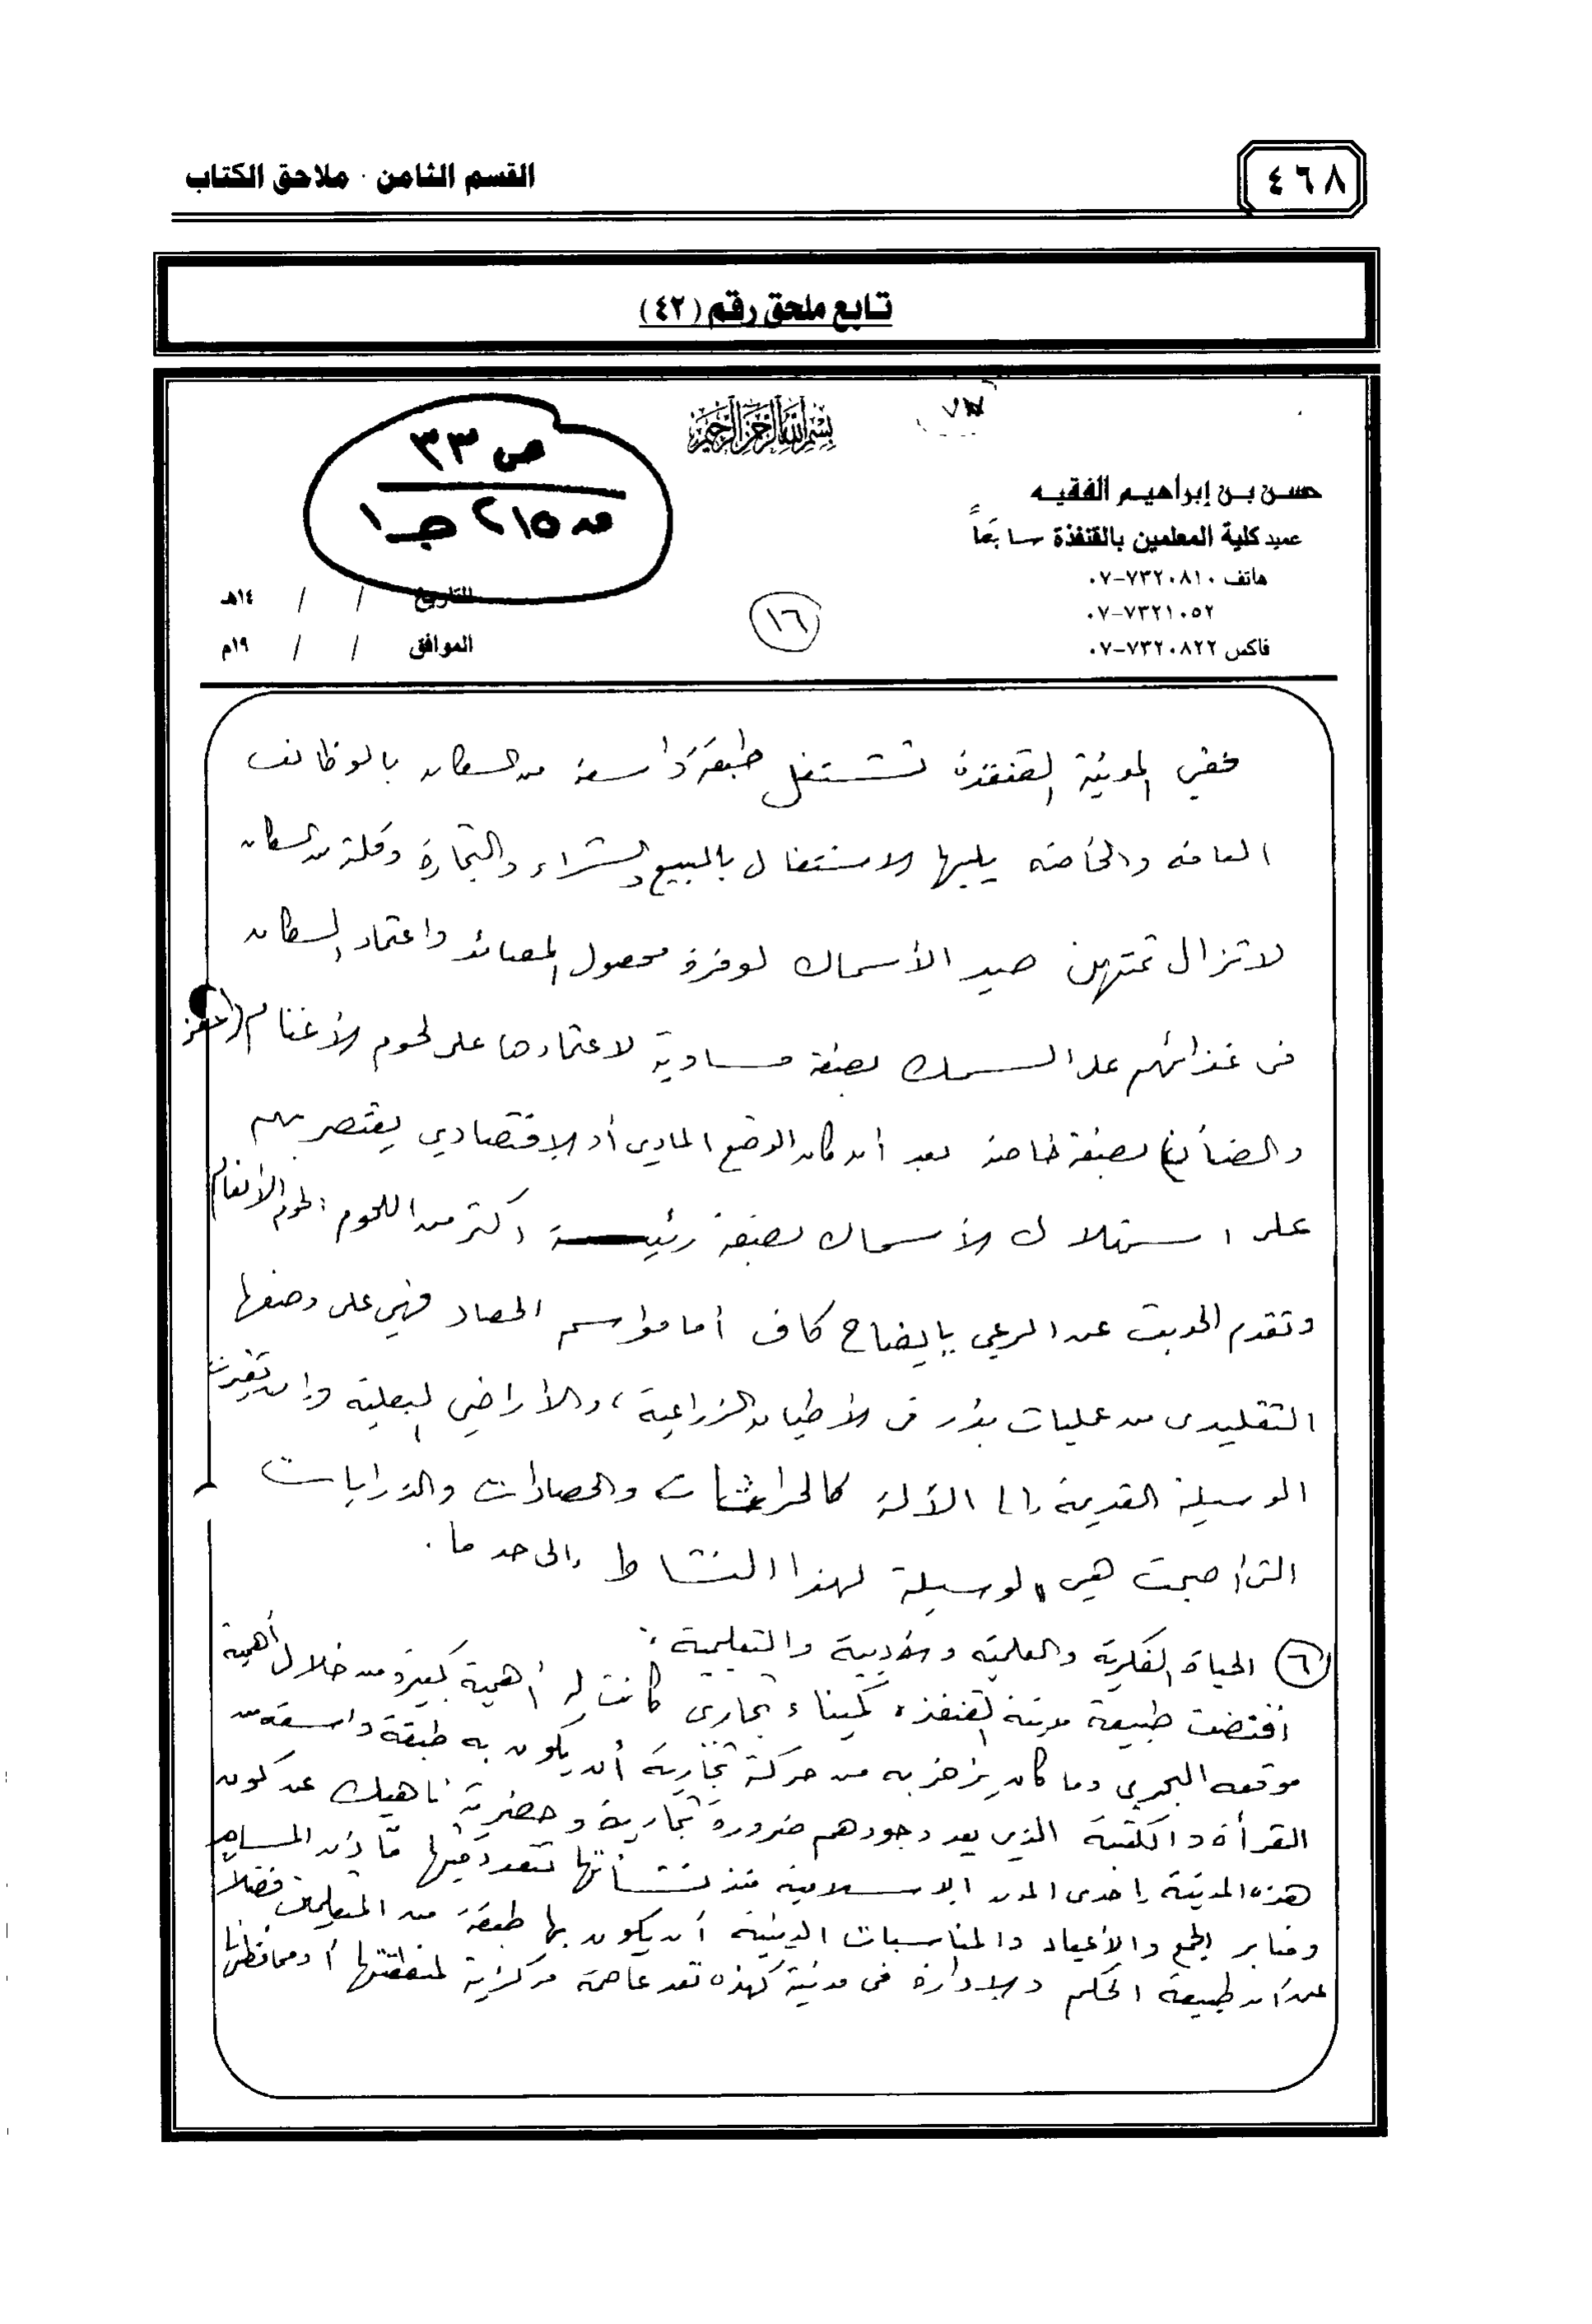 ٤٦٨
القسم الثامن - ملاحق الكتاب
تابع ملحق رقم (٤٢)
بسم الله الرحمن الرحيم
ص ٣٣
٢١٥ جـ ١
حسن بن إبراهيم الفقيه
عميد كلية المعلمين بالقنفذة سابقاً
هاتف ٧٣٢٠٨١٠-٠٧
٧٣٢١٠٥٢-٠٧
فاكس ٧٣٢٠٨٢٢-٠٧
التاريخ / / ١٤هـ
الموافق / / ١٩م
١٦
ففي المدينة القنفذة تشتغل طبقة واسعة من السكان بالوظائف
العامة والخاصة يليها الاشتغال بالبيع والشراء والتجارة وقلة من السكان
لا تزال تمتهن صيد الأسماك لوفرة محصول المصائد واعتماد السكان
في غذائهم على السمك بصفة مساوية لاعتمادها على لحوم الأغنام (الماعز
والضأن) بصفة خاصة بعد أن كان الوضع المادي أو الاقتصادي يقتصر بهم
على استهلاك الأسماك بصفة رئيسة أكثر من اللحوم : لحوم الأنعام
وتقدم الحديث عن الرعي بإيضاح كاف أما مواسم الحصاد فهي على وضعها
التقليدي من عمليات بذر في الأطيان الزراعية، والأراضي البعلية وإن تغيرت
الوسيلة القديمة إلى الآلة كالحراثات والحصادات والذرايات
التي أصبحت هي الوسيلة لهذا النشاط إلى حد ما .
٦ الحياة الفكرية والعلمية والأدبية والتعليمية :
اقتضت طبيعة مدينة القنفذة كميناء تجاري كانت له أهمية كبيرة من خلال أهمية
موقعه البحري وما كان يزخر به من حركة تجارية أن يكون به طبقة واسعة من
القرأة والكتبة الذي يعد وجودهم ضرورة تجارية وحضرية ناهيك عن كون
هذه المدينة إحدى المدن الإسلامية منذ نشأتها تتعدد فيها مآذن المساجد
ومنابر الجمع والأعياد والمناسبات الدينية أن يكون بها طبقة من المتعلمين فضلاً
عن أن طبيعة الحكم والإدارة في مدينة كهذه تعد عاصمة مركزية لمنطقتها أو محافظتها